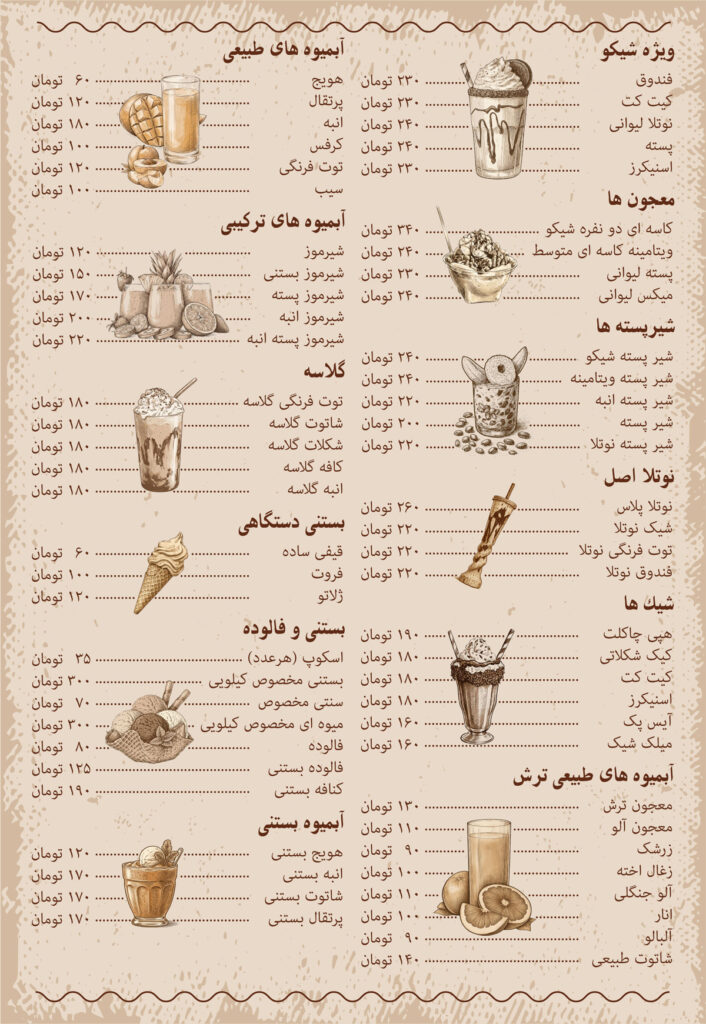 ویژه شیکو
فندوق ۲۳۰ تومان
کیت کت ۲۳۰ تومان
نوتلا لیوانی ۲۴۰ تومان
پسته ۲۴۰ تومان
اسنیکرز ۲۳۰ تومان
معجون ها
کاسه ای دو نفره شیکو ۳۴۰ تومان
ویتامینه کاسه ای متوسط ۲۴۰ تومان
پسته لیوانی ۲۳۰ تومان
میکس لیوانی ۲۴۰ تومان
شیرپسته ها
شیر پسته شیکو ۲۴۰ تومان
شیر پسته ویتامینه ۲۴۰ تومان
شیر پسته انبه ۲۲۰ تومان
شیر پسته ۲۰۰ تومان
شیر پسته نوتلا ۲۲۰ تومان
نوتلا اصل
نوتلا پلاس ۲۶۰ تومان
شیک نوتلا ۲۲۰ تومان
توت فرنگی نوتلا ۲۲۰ تومان
فندوق نوتلا ۲۲۰ تومان
شیك ها
هپی چاکلت ۱۹۰ تومان
کیک شکلاتی ۱۸۰ تومان
کیت کت ۱۸۰ تومان
اسنیکرز ۱۸۰ تومان
آیس پک ۱۶۰ تومان
میلک شیک ۱۶۰ تومان
آبمیوه های طبیعی ترش
معجون ترش ۱۳۰ تومان
معجون آلو ۱۱۰ تومان
زرشک ۹۰ تومان
زغال اخته ۱۰۰ تومان
آلو جنگلی ۱۱۰ تومان
انار ۱۰۰ تومان
آلبالو ۹۰ تومان
شاتوت طبیعی ۱۴۰ تومان
آبمیوه های طبیعی
هویج ۶۰ تومان
پرتقال ۱۲۰ تومان
انبه ۱۸۰ تومان
کرفس ۱۰۰ تومان
توت فرنگی ۱۲۰ تومان
سیب ۱۰۰ تومان
آبمیوه های ترکیبی
شیرموز ۱۲۰ تومان
شیرموز بستنی ۱۵۰ تومان
شیرموز پسته ۱۷۰ تومان
شیرموز انبه ۲۰۰ تومان
شیرموز پسته انبه ۲۲۰ تومان
گلاسه
توت فرنگی گلاسه ۱۸۰ تومان
شاتوت گلاسه ۱۸۰ تومان
شکلات گلاسه ۱۸۰ تومان
کافه گلاسه ۱۸۰ تومان
انبه گلاسه ۱۸۰ تومان
بستنی دستگاهی
قیفی ساده ۶۰ تومان
فروت ۱۰۰ تومان
ژلاتو ۱۲۰ تومان
بستنی و فالوده
اسکوپ (هرعدد) ۳۵ تومان
بستنی مخصوص کیلویی ۳۰۰ تومان
سنتی مخصوص ۷۰ تومان
میوه ای مخصوص کیلویی ۳۰۰ تومان
فالوده ۸۰ تومان
فالوده بستنی ۱۲۵ تومان
کنافه بستنی ۱۹۰ تومان
آبمیوه بستنی
هویج بستنی ۱۲۰ تومان
انبه بستنی ۱۷۰ تومان
شاتوت بستنی ۱۷۰ تومان
پرتقال بستنی ۱۷۰ تومان